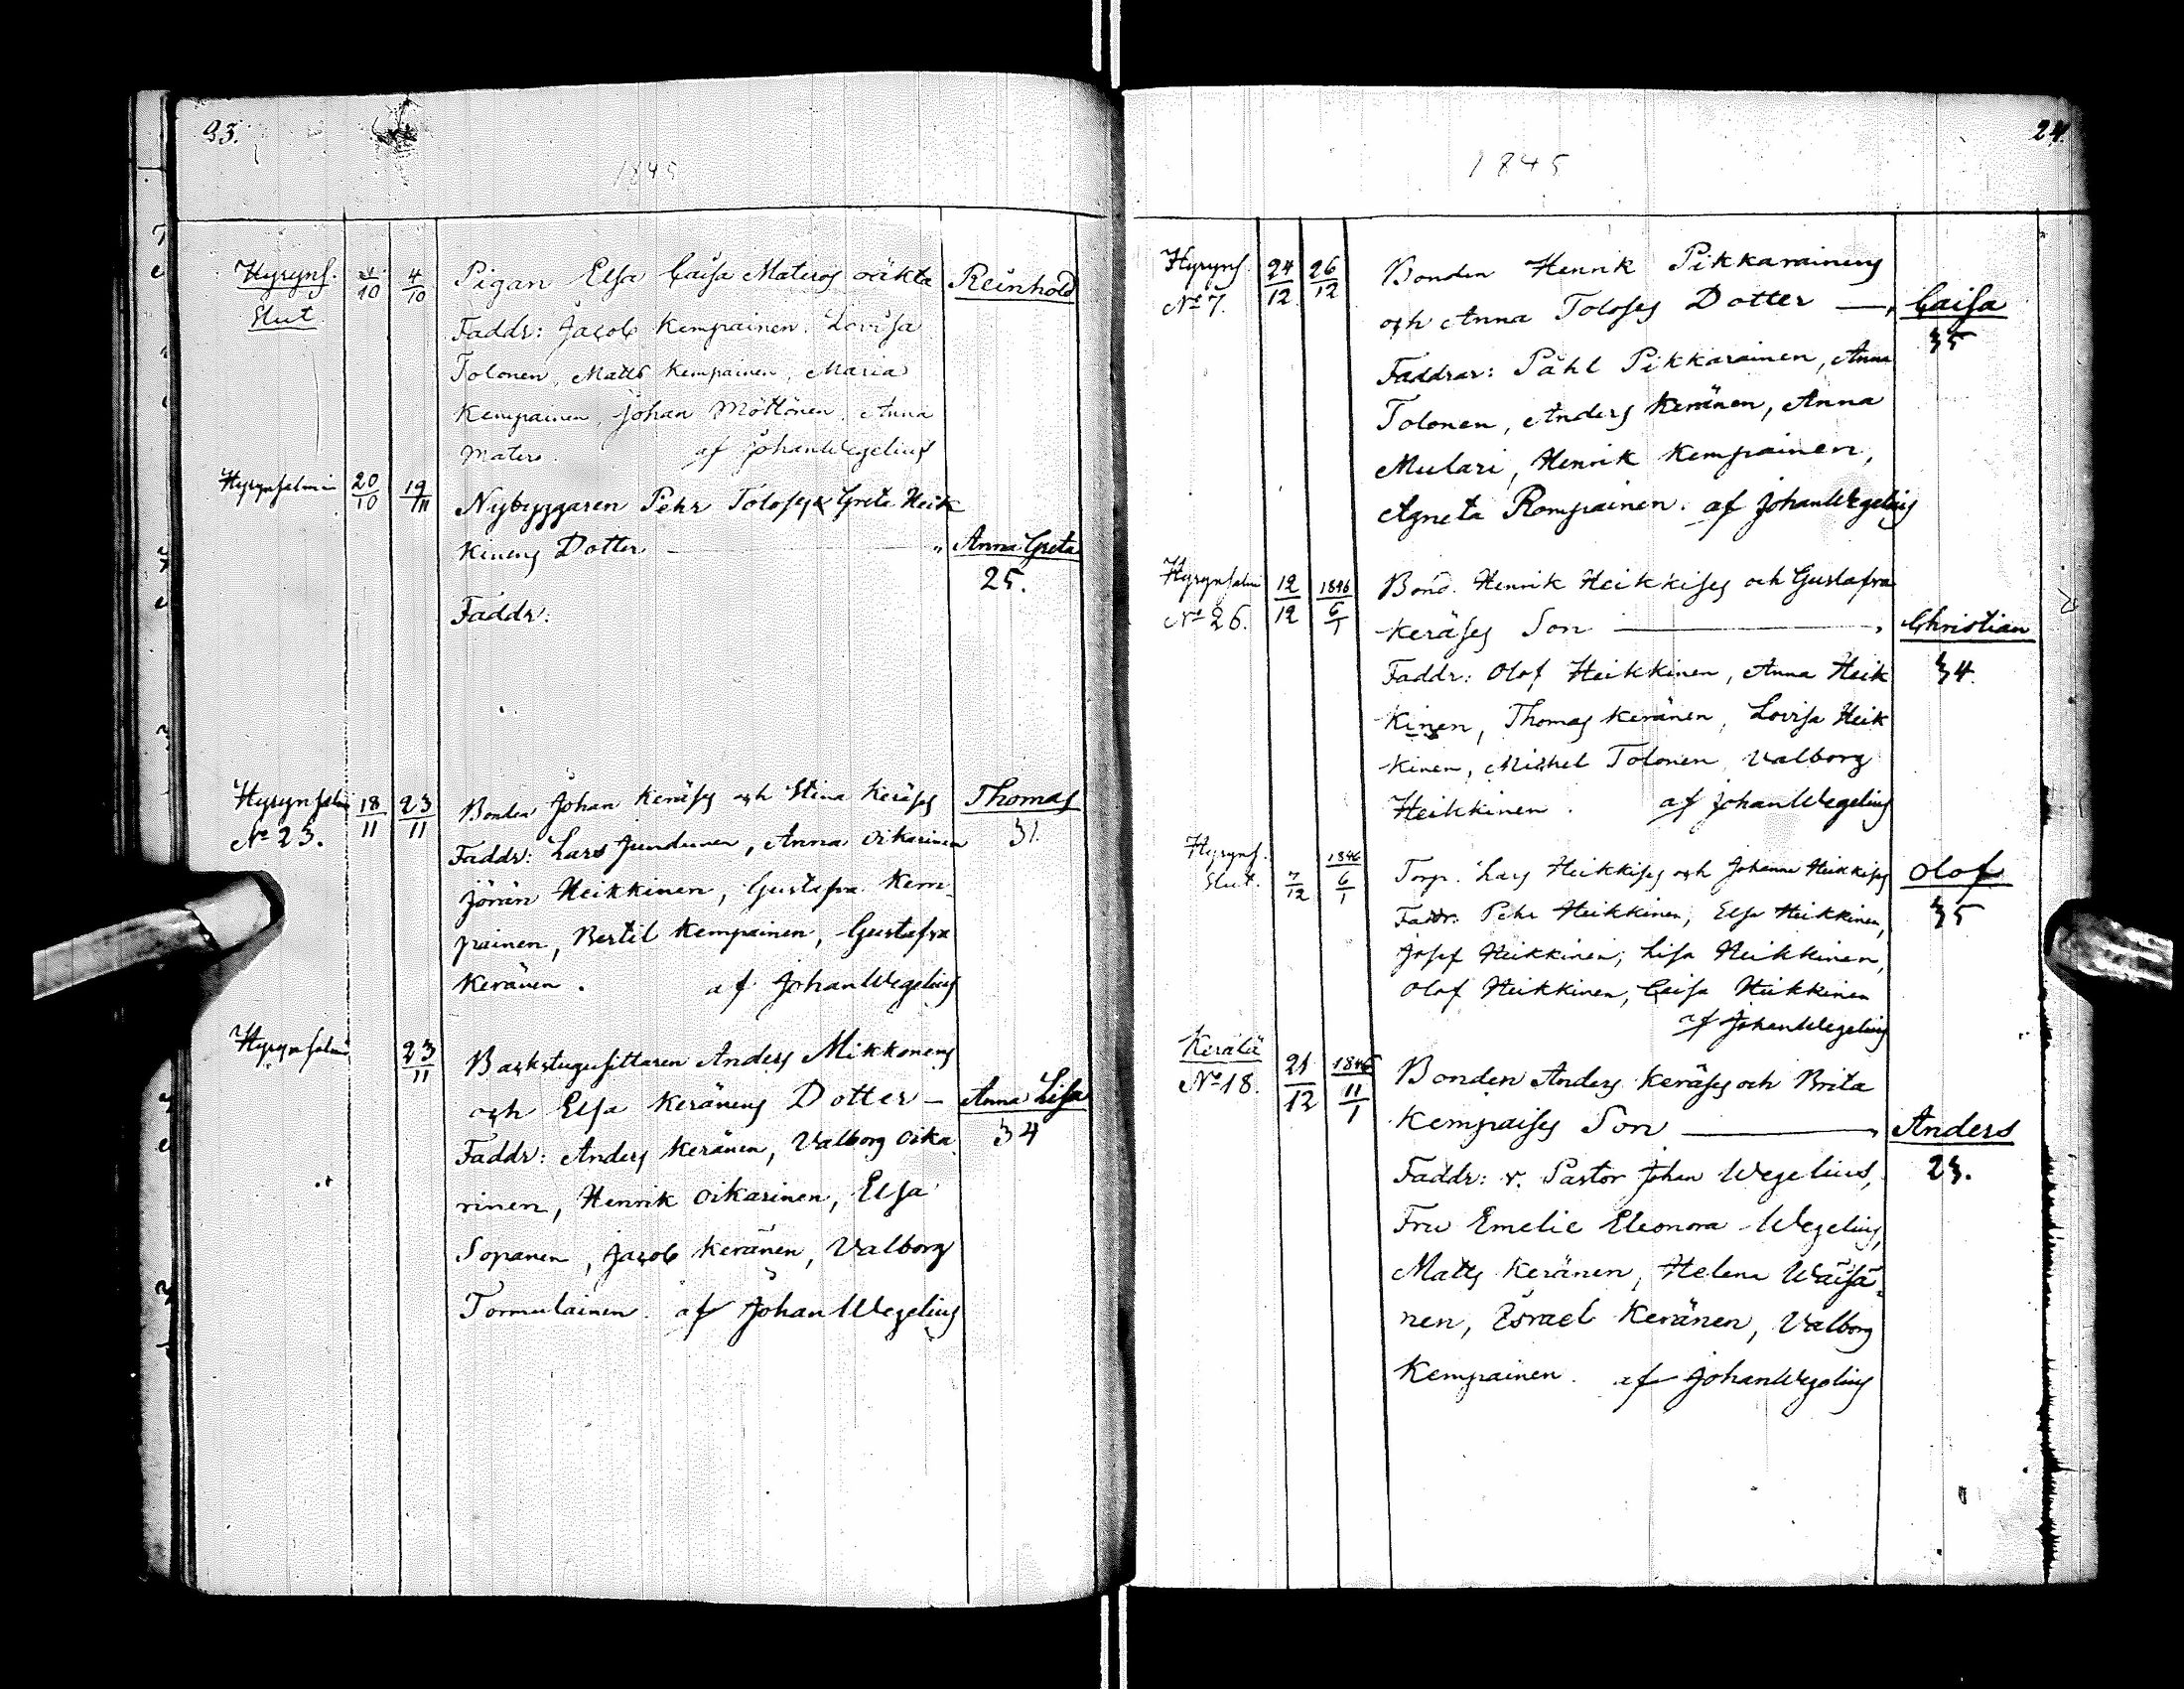 23.
1845
Hyryns. 4/10 4/10 Pigan Elsa Caisa Materos oäkta Reinhold
Slut Faddr: Jacob Kempainen. Lovisa
Tolonen, Matts Kempainen, Maria
Kempainen, Johan Möttönen, Anna
Matero. af Johan Wegelius
Hyrynsalmi 20/10 19/11 Nybyggaren Pehr Toloses & Greta Heik
kinens Dotter — " Anna Greta
25.
Faddr:
Hyrynsalmi 18/11 23/11 Bonden Johan Keräses och Stina Keräses Thomas
No 23. Faddr: Lars Jundunen, Anna Oikarinen 31.
Jöran Heikkinen, Gustafva Kem-
painen, Bertil Kempainen, Gustafva
Keränen. af Johan Wegelius
Hyrynsalmi 23/11 Backstugusittaren Anders Mikkonens
och Elsa Keränens Dotter — Anna Lisa
Faddr: Anders Keränen, Valborg Oika 34
rinen, Henrik Oikarinen, Elsa
Sopanen, Jacob Keränen, Valborg
Tormulainen. af Johan Wegelius
24.
1845
Hyryns. 24/12 26/12 Bonden Henrik Pikkarainens
No 7. och Anna Toloses Dotter —, Caisa
35
Faddrar: Påhl Pikkarainen, Anna
Tolonen, Anders Keränen, Anna
Mulari, Henrik Kempainen,
Agneta Rompainen. af Johan Wegelius
Hyrynsalmi 12/12 1846 6/1 Bond. Henrik Heikkises och Gustafva
No 26. Keräses Son —, Christian
Faddr: Olof Heikkinen, Anna Heik 34
kinen, Thomas Keränen, Lovisa Heik
kinen, Michel Tolonen, Valborg
Heikkinen. af Johan Wegelius
Hyryns. 7/12 1846 6/1 Torp. Lars Heikkises och Johanna Heikkises Olof
Slut. Faddr: Pehr Heikkinen, Elsa Heikkinen, 35
Josef Heikkinen, Lisa Heikkinen,
Olof Heikkinen, Caisa Heikkinen
af Johan Wegelius
Kerälä 21/12 1846 11/1 Bonden Anders Keräses och Brita
No 18. Kempaises Son —, Anders
Faddr: v. Pastor Johan Wegelius, 23.
Fru Emelie Eleonora Wegelius,
Matts Keränen, Helena Wäisä-
nen, Israel Keränen, Valborg
Kempainen. af Johan Wegelius